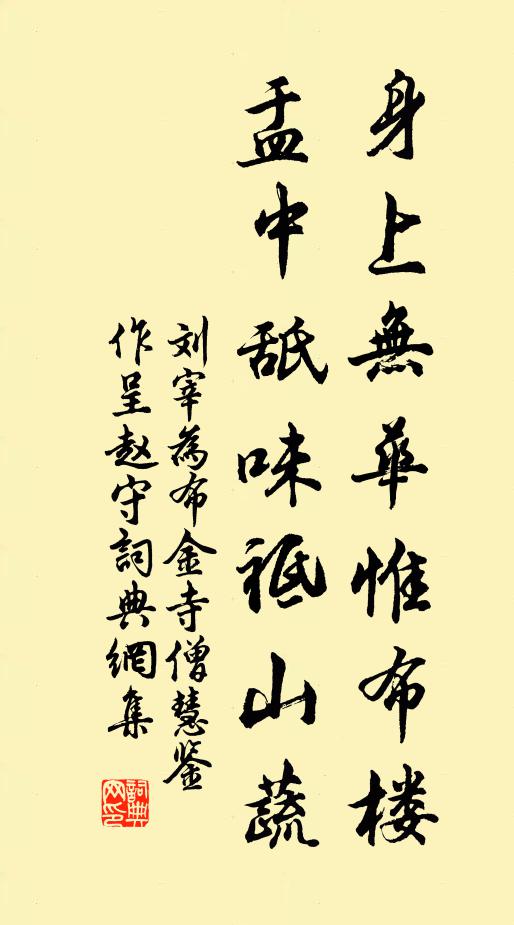 身上無華惟布楼
盂中舐味祗山蔬
刘宰為布金寺僧慧鉴
作呈赵守詞典網集
詞典
网印